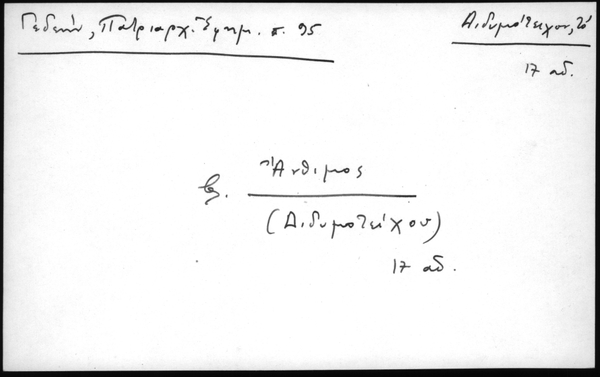 Γεδεών, Πατριαρχ. Ἐφημ. σ. 95
Διδυμότειχον, τό
17 αἰ.
βλ. Ἄνθιμος
(Διδυμοτείχου)
17 αἰ.